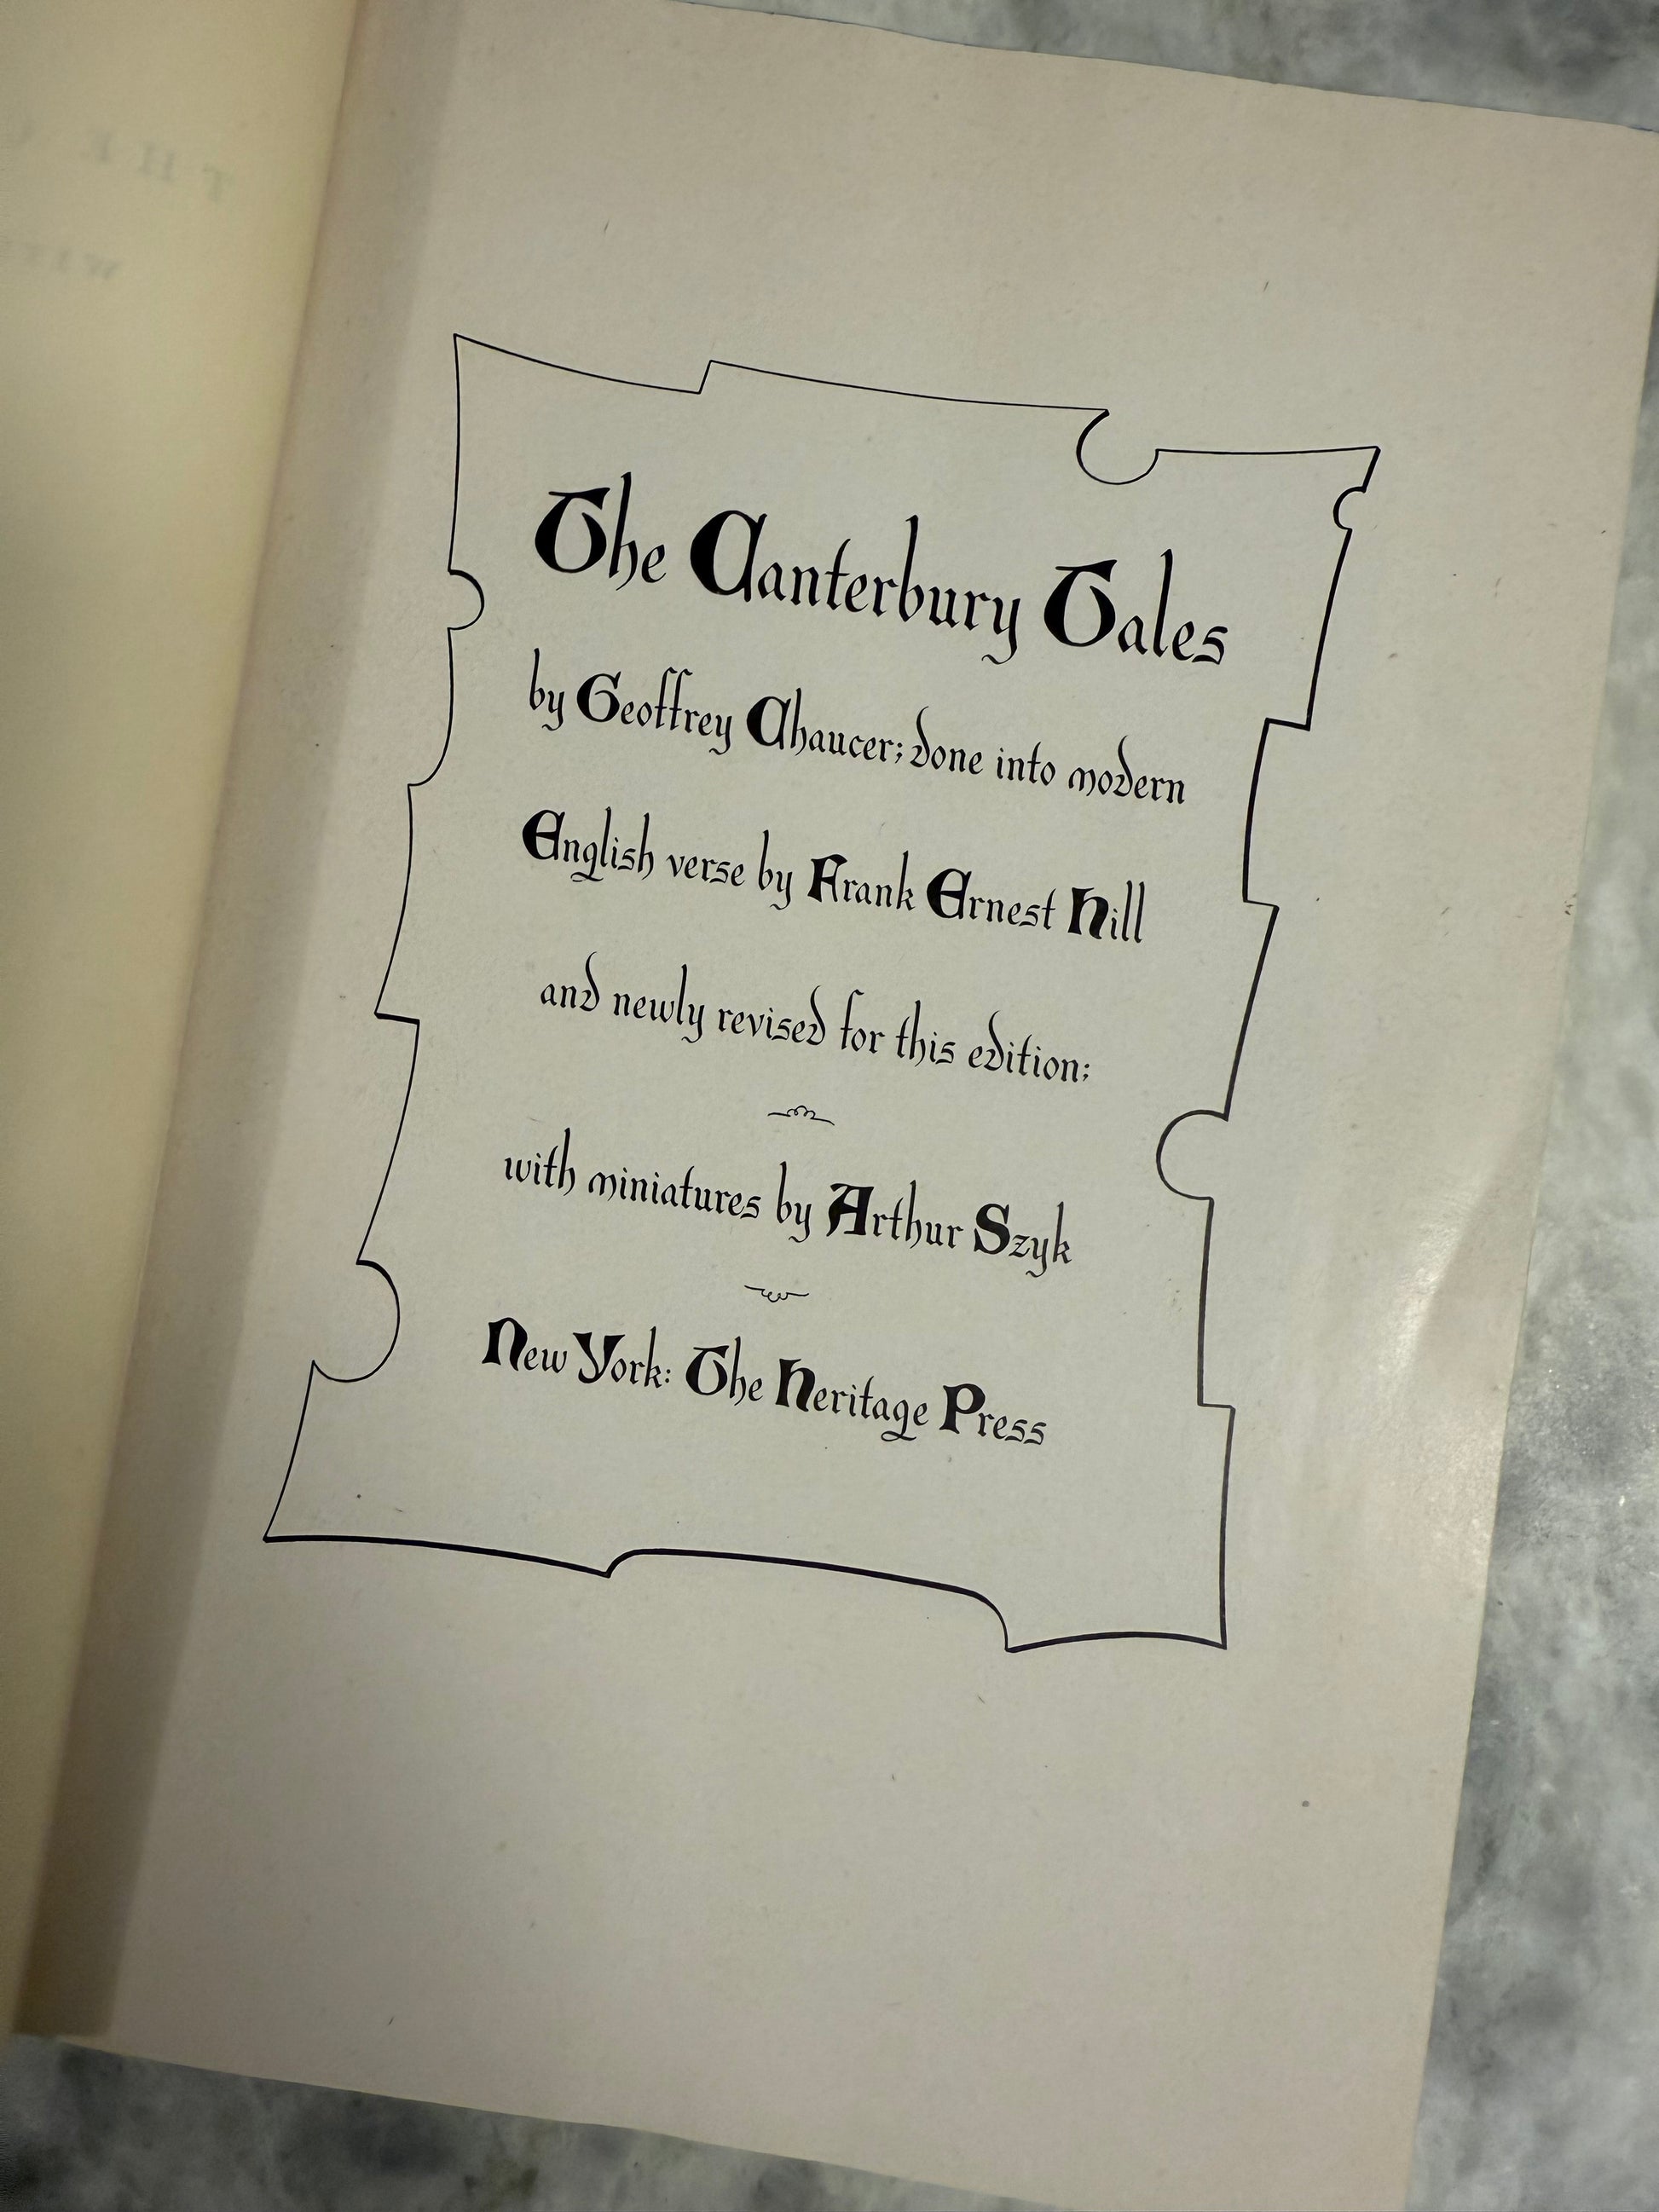 The Canterbury Tales
by Geoffrey Chaucer; done into modern
English verse by Frank Ernest Hill
and newly revised for this edition;
with miniatures by Arthur Szyk
New York: The Heritage Press